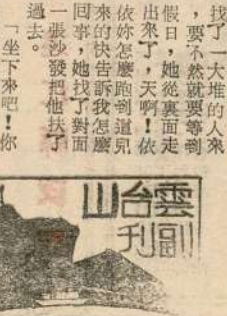 找了一大堆的人來
，要不然就要等到
假日，她從裏面走
出來了，天啊！依
依妳怎麼跑到這兒
來的快告訴我怎麼
回事，她找了對面
一張沙發把他扶了
過去。
「坐下來吧！你
雲台山
副刊